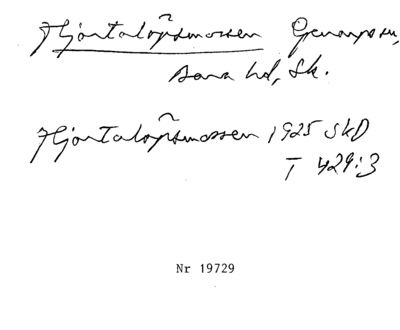 Hjortalöpsmossen Genarps sn,
Bara hd, Sk.
Hjortalöpsmossen 1925 SkD
T 429:3
Nr 19729